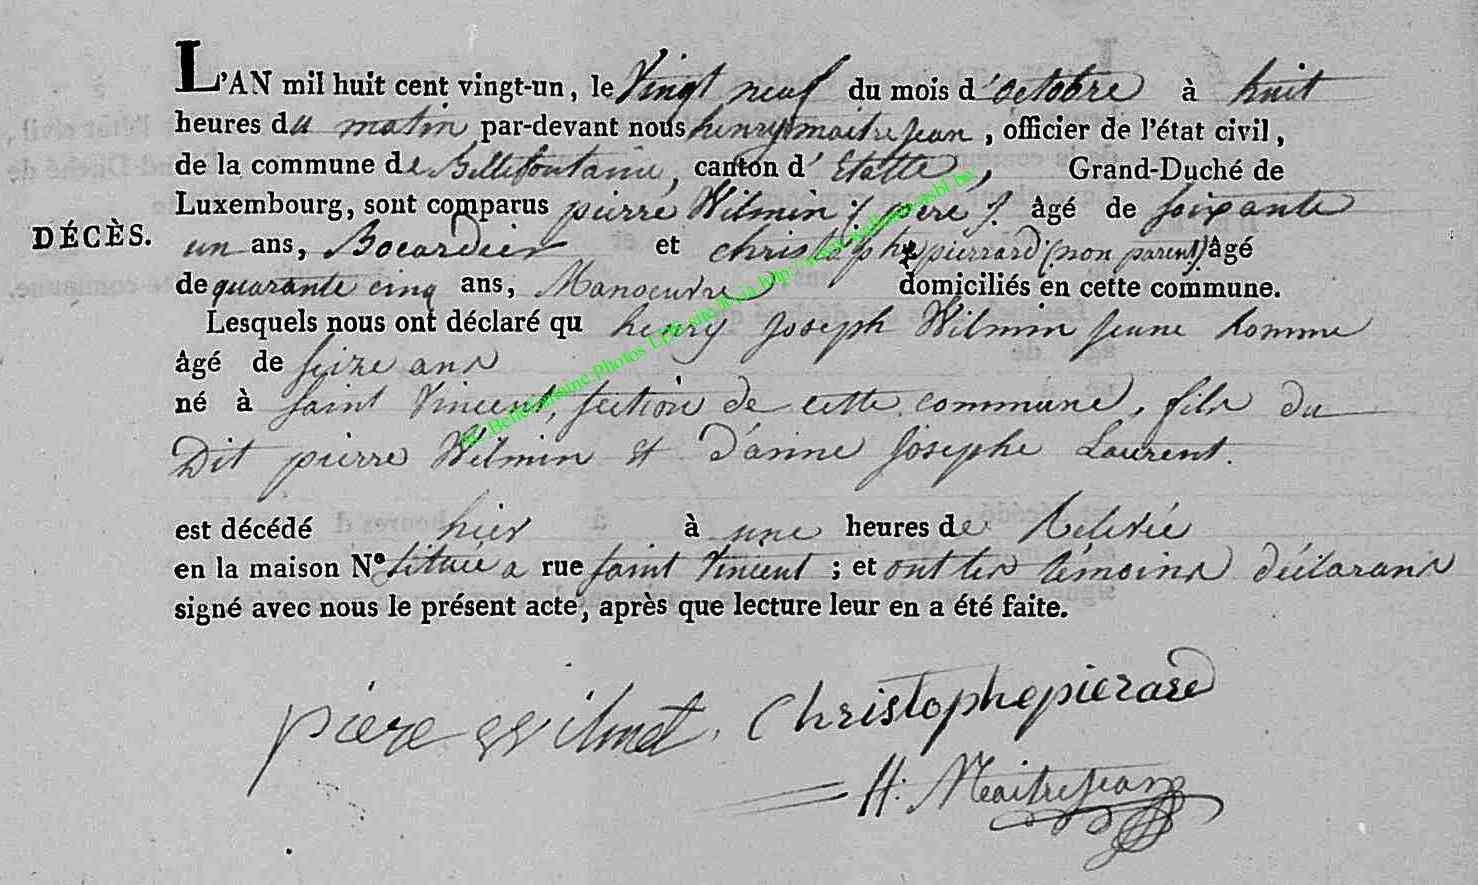 L'AN mil huit cent vingt-un, le Vingt neuf du mois d'octobre à huit
heures du matin par-devant nous henry maitrejean, officier de l'état civil,
de la commune de Bellefontaine, canton d'Etalle, Grand-Duché de
Luxembourg, sont comparus pierre Wilmin /père/. âgé de soixante
DÉCÈS.
un ans, Bocardier et christophe pierrard (non parent) âgé
de quarante cinq ans, Manoeuvre domiciliés en cette commune.
Lesquels nous ont déclaré qu henry Joseph Wilmin jeune homme
âgé de seize ans
né à saint Vincent, section de cette commune, fils du
Dit pierre Wilmin et d'anne Josephe Laurent.
est décédé hier à une heures de Relevée
en la maison N° située a rue saint Vincent ; et ont les témoins déclarans
signé avec nous le présent acte, après que lecture leur en a été faite.
piere wilmet, Christophe pierard
H: Maitrejean